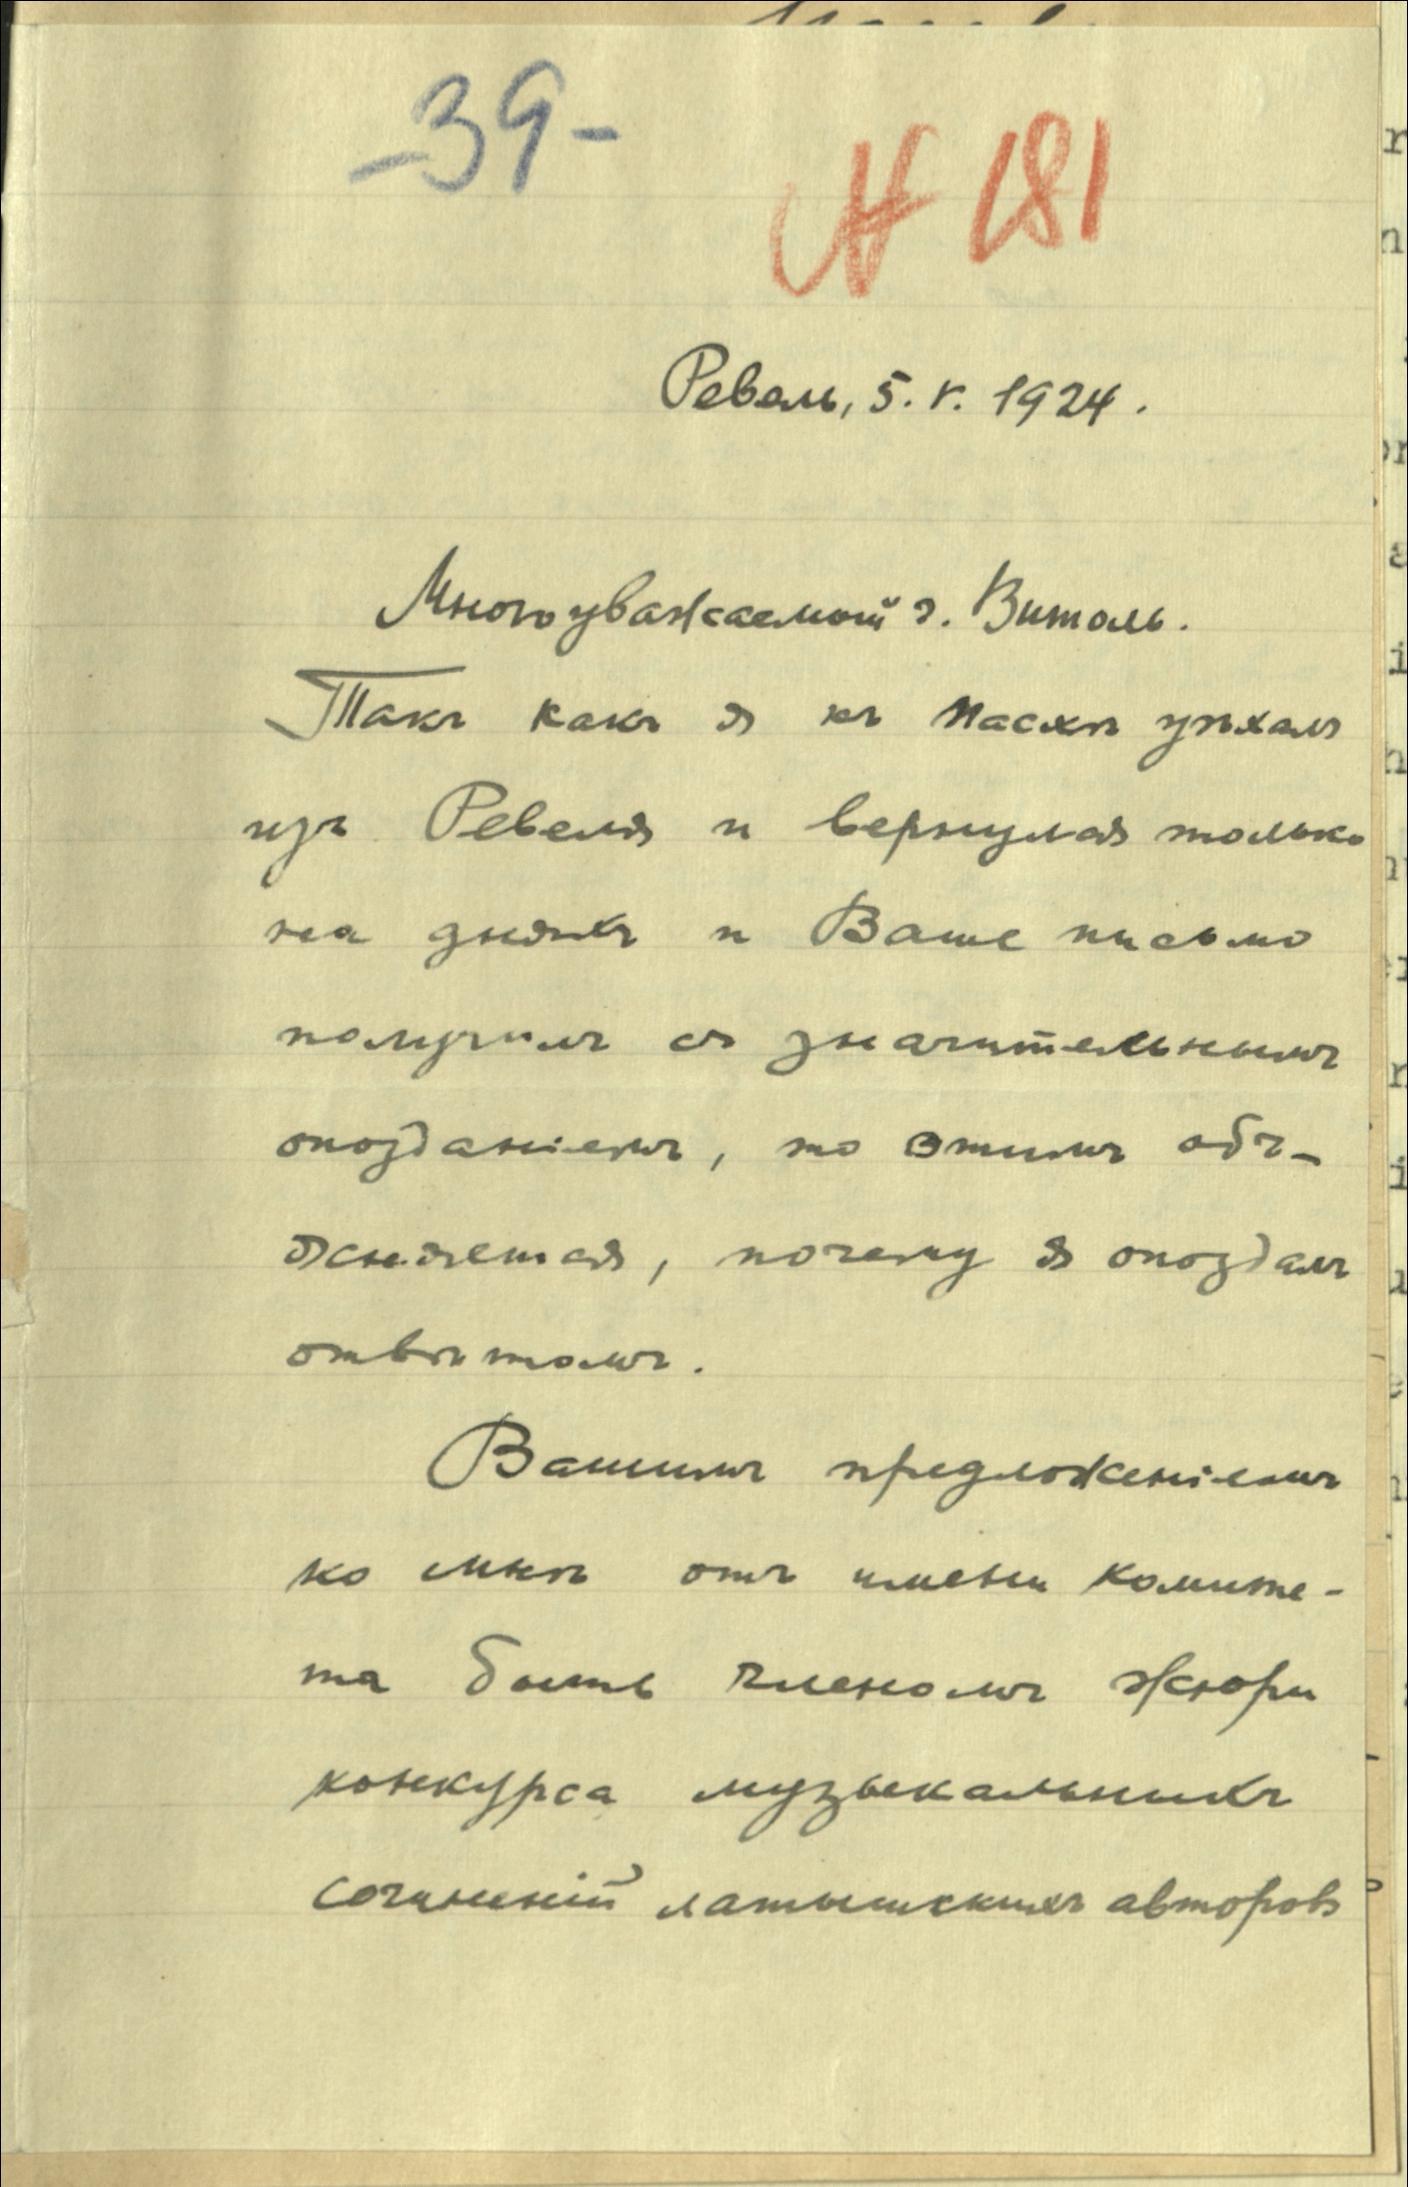 -39-
№ 181
Ревель, 5. V. 1924.
Многоуважаемый г. Витоль.
Такъ какъ я къ Пасхѣ уѣхалъ
изъ Ревеля и вернулся только
на дняхъ и Ваше письмо
получилъ съ значительнымъ
опозданіемъ, то этимъ объ-
ясняется, почему я опоздалъ
отвѣтомъ.
Вашимъ предложеніемъ
ко мнѣ отъ имени комите-
та быть членомъ жюри
конкурса музыкальныхъ
сочиненій латышскихъ авторовъ